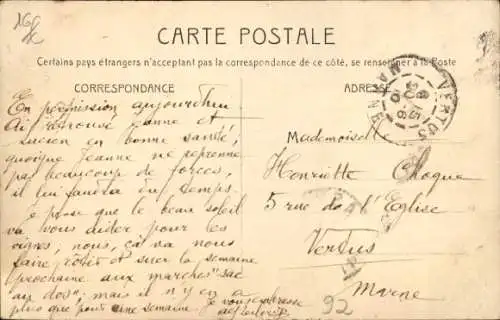 16f
CARTE POSTALE
Certains pays étrangers n'acceptant pas la correspondance de ce côté, se renseigner à la Poste
CORRESPONDANCE
ADRESSE
VERTUS
MARNE
En permission aujourd'hui
Ai retrouvé Jeanne et
Lucien en bonne santé;
quoique Jeanne ne reprenne
pas beaucoup de forces,
il lui faudra du temps.
Je pense que le beau soleil
va vous aider pour les
vignes, nous, ça va nous
faire rôtir et suer la semaine
prochaine aux marches "sac
au dos", mais il n'y en a
plus que pour une semaine. Je vous embrasse
Mademoiselle
Henriette Choque
5 rue de l'Eglise
Vertus
Marne
92